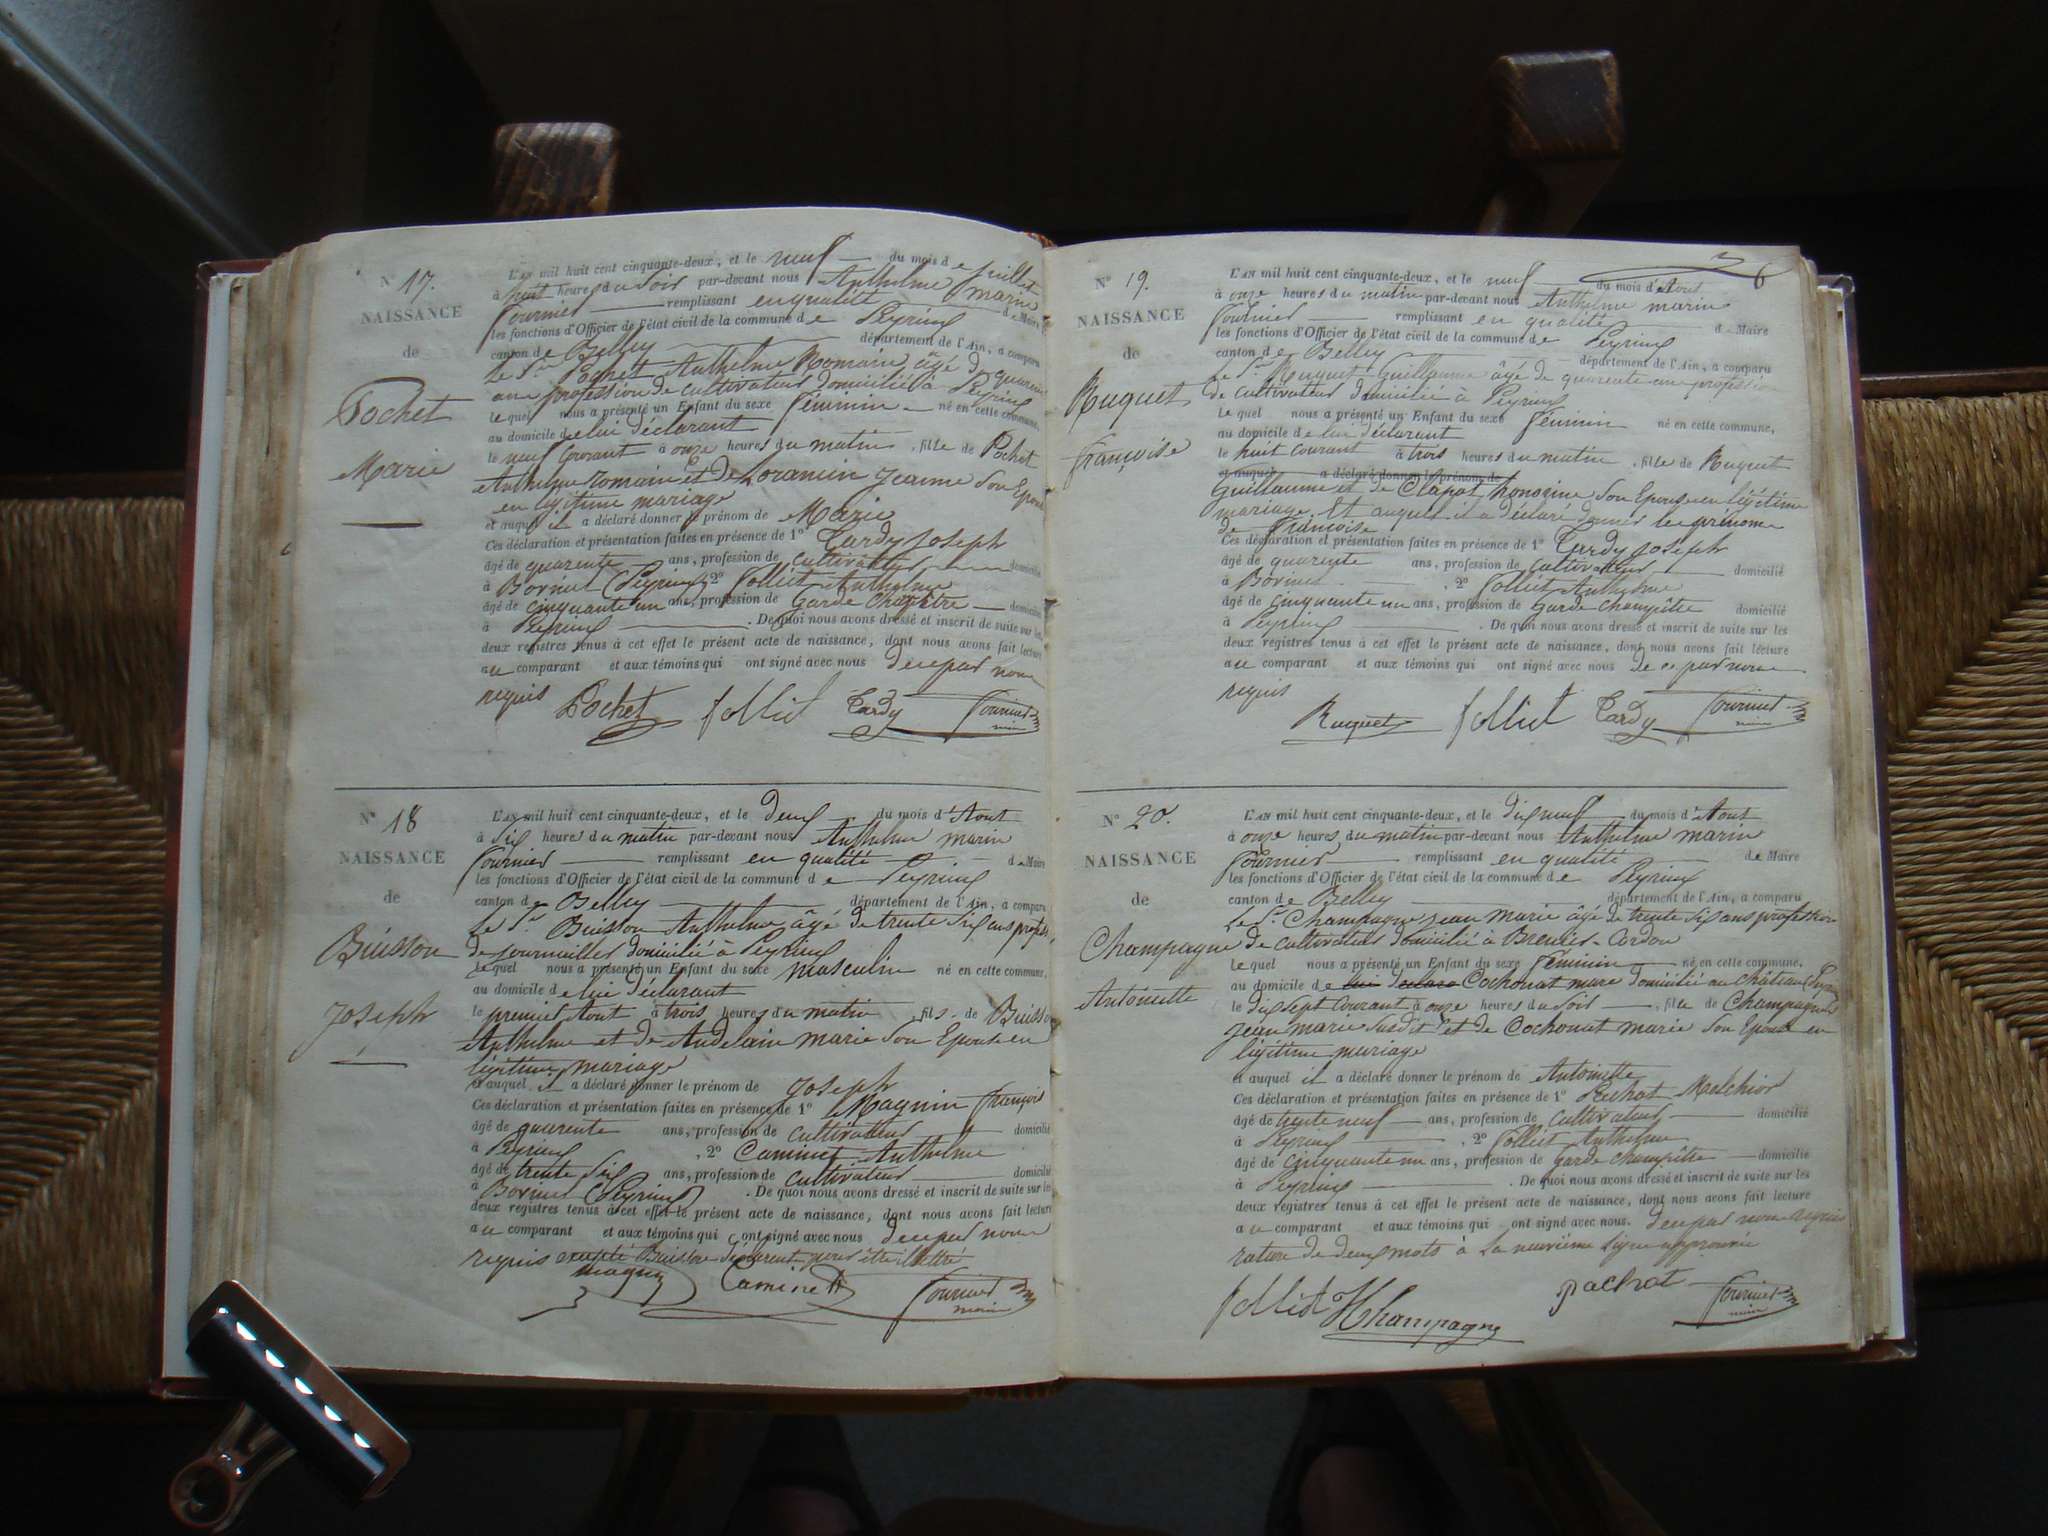 N° 17.
NAISSANCE
de
Pochet
Marie
L'AN mil huit cent cinquante-deux, et le neuf du mois de juillet
à huit heures du soir par-devant nous Anthelme marin
fournier remplissant en qualité de Maire
les fonctions d'Officier de l'état civil de la commune de Peyrieux
canton de Belley département de l'Ain, a comparu
le Sr Pochet Anthelme Romain âgé de quarente
ans profession de cultivateur domicilié à Peyrieux
lequel nous a présenté un Enfant du sexe féminin né en cette commune,
au domicile de lui déclarant
le neuf Courant à onze heures du matin, fille de Pochet
Anthelme romain et de Loramin Jeanne son Epouse
en légitime mariage
et auquel il a déclaré donner le prénom de Marie
Ces déclaration et présentation faites en présence de 1° Tardy Joseph
âgé de quarente ans, profession de cultivateur domicilié
à Bornut (Peyrieux) 2° folliet Anthelme
âgé de cinquante un ans, profession de Garde Champêtre domicilié
à Peyrieux. De quoi nous avons dressé et inscrit de suite sur les
deux registres tenus à cet effet le présent acte de naissance, dont nous avons fait lecture
au comparant et aux témoins qui ont signé avec nous de ce par nous
requis
Pochet folliet Tardy fournier
maire
N° 18
NAISSANCE
de
Buisson
Joseph
L'AN mil huit cent cinquante-deux, et le deux du mois d'Aout
à six heures du matin par-devant nous Anthelme marin
fournier remplissant en qualité de Maire
les fonctions d'Officier de l'état civil de la commune de Peyrieux
canton de Belley département de l'Ain, a comparu
le Sr Buisson Anthelme âgé de trente six ans profess.
de journallier domicilié à Peyrieux
lequel nous a présenté un Enfant du sexe masculin né en cette commune,
au domicile de lui déclarant
le premier Aout à trois heures du matin, fils de Buisson
Anthelme et de Andelain marie son Epouse en
légitime mariage
et auquel il a déclaré donner le prénom de Joseph
Ces déclaration et présentation faites en présence de 1° Magnin françois
âgé de quarente ans, profession de cultivateur domicilié
à Peyrieux, 2° Caminet Anthelme
âgé de trente six ans, profession de cultivateur domicilié
à Bornut (Peyrieux). De quoi nous avons dressé et inscrit de suite sur les
deux registres tenus à cet effet le présent acte de naissance, dont nous avons fait lecture
au comparant et aux témoins qui ont signé avec nous de ce par nous
requis excepté Buisson déclarant pour être illettré
magnin Caminet fournier
maire
6
N° 19.
NAISSANCE
de
Ruquet
françoise
L'AN mil huit cent cinquante-deux, et le neuf du mois d'Aout
à onze heures du matin par-devant nous Anthelme marin
fournier remplissant en qualité de Maire
les fonctions d'Officier de l'état civil de la commune de Peyrieux
canton de Belley département de l'Ain, a comparu
le Sr Ruquet Guillaume âgé de quarente ans profession
de cultivateur domicilié à Peyrieux
lequel nous a présenté un Enfant du sexe féminin né en cette commune,
au domicile de lui déclarant
le huit courant à trois heures du matin, fille de Ruquet
et auquel a déclaré donner le prénom de
Guillaume et de Clapot honorine son Epouse en légitime
mariage. Et auquel il a déclaré donner le prénom
de françoise
Ces déclaration et présentation faites en présence de 1° Tardy Joseph
âgé de quarente ans, profession de cultivateur domicilié
à Bornut, 2° folliet Anthelme
âgé de cinquante un ans, profession de Garde champêtre domicilié
à Peyrieux. De quoi nous avons dressé et inscrit de suite sur les
deux registres tenus à cet effet le présent acte de naissance, dont nous avons fait lecture
au comparant et aux témoins qui ont signé avec nous de ce par nous
requis
Ruquet folliet Tardy fournier
maire
N° 20.
NAISSANCE
de
Champagne
Antoinette
L'AN mil huit cent cinquante-deux, et le dix neuf du mois d'Aout
à onze heures du matin par-devant nous Anthelme marin
fournier remplissant en qualité de Maire
les fonctions d'Officier de l'état civil de la commune de Peyrieux
canton de Belley département de l'Ain, a comparu
le Sr Champagne jean marie âgé de trente six ans profession
de cultivateur domicilié à Brenier-Cordon
lequel nous a présenté un Enfant du sexe féminin né en cette commune,
au domicile de lui declara Cochonat marc domicilié au château (Peyrieux)
le dix sept courant à onze heures du soir, fille de Champagne
jean marie susdit et de Cochonat marie son Epouse en
légitime mariage
et auquel il a déclaré donner le prénom de Antoinette
Ces déclaration et présentation faites en présence de 1° Pachot Melchior
âgé de trente neuf ans, profession de cultivateur domicilié
à Peyrieux, 2° folliet Anthelme
âgé de cinquante un ans, profession de Garde champêtre domicilié
à Peyrieux. De quoi nous avons dressé et inscrit de suite sur les
deux registres tenus à cet effet le présent acte de naissance, dont nous avons fait lecture
au comparant et aux témoins qui ont signé avec nous. de ce par nous requis
rature de deux mots à la neuvième ligne approuvée
folliet Champagne pachot fournier
maire